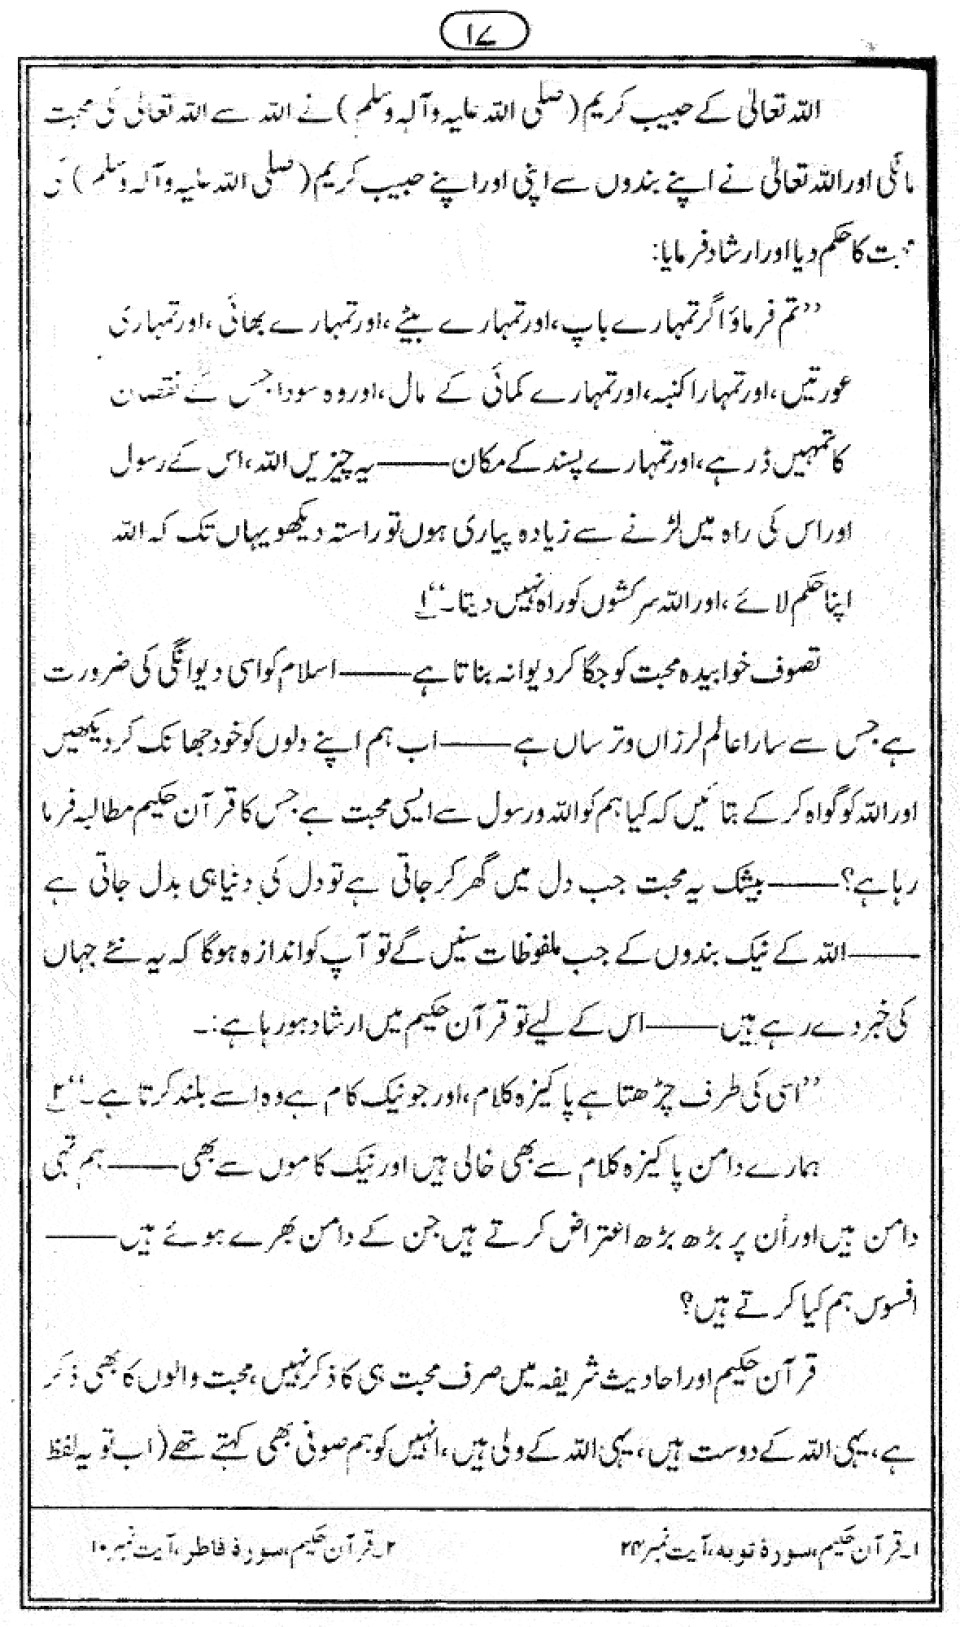 ۱۷
اللہ تعالیٰ کے حبیب کریم (صلی اللہ علیہ وآلہ وسلم) نے اللہ سے اللہ تعالیٰ کی محبت
مانگی اور اللہ تعالیٰ نے اپنے بندوں سے اپنی اور اپنے حبیب کریم (صلی اللہ علیہ وآلہ وسلم) کی
محبت کا حکم دیا اور ارشاد فرمایا:
”تم فرماؤ اگر تمہارے باپ، اور تمہارے بیٹے، اور تمہارے بھائی، اور تمہاری
عورتیں، اور تمہارا کنبہ، اور تمہارے کمائی کے مال، اور وہ سودا جس کے نقصان
کا تمہیں ڈر ہے، اور تمہارے پسند کے مکان —— یہ چیزیں اللہ، اس کے رسول
اور اس کی راہ میں لڑنے سے زیادہ پیاری ہوں تو راستہ دیکھو یہاں تک کہ اللہ
اپنا حکم لائے، اور اللہ سرکشوں کو راہ نہیں دیتا۔“۱
تصوف خوابیدہ محبت کو جگا کر دیوانہ بناتا ہے —— اسلام کو اسی دیوانگی کی ضرورت
ہے جس سے سارا عالم لرزاں و ترساں ہے —— اب ہم اپنے دلوں کو خود جھانک کر دیکھیں
اور اللہ کو گواہ کر کے بتائیں کہ کیا ہم کو اللہ و رسول سے ایسی محبت ہے جس کا قرآن حکیم مطالبہ فرما
رہا ہے؟ —— بیشک یہ محبت جب دل میں گھر کر جاتی ہے تو دل کی دنیا ہی بدل جاتی ہے
—— اللہ کے نیک بندوں کے جب ملفوظات سنیں گے تو آپ کو اندازہ ہوگا کہ یہ نئے جہاں
کی خبر دے رہے ہیں —— اس کے لیے تو قرآن حکیم میں ارشاد ہو رہا ہے:۔
”اسی کی طرف چڑھتا ہے پاکیزہ کلام، اور جو نیک کام ہے وہ اسے بلند کرتا ہے۔“۲
ہمارے دامن پاکیزہ کلام سے بھی خالی ہیں اور نیک کاموں سے بھی —— ہم تہی
دامن ہیں اور اُن پر بڑھ بڑھ اعتراض کرتے ہیں جن کے دامن بھرے ہوئے ہیں ——
افسوس ہم کیا کرتے ہیں؟
قرآن حکیم اور احادیث شریفہ میں صرف محبت ہی کا ذکر نہیں، محبت والوں کا بھی ذکر
ہے، یہی اللہ کے دوست ہیں، یہی اللہ کے ولی ہیں، انہیں کو ہم صوفی بھی کہتے تھے (اب تو یہ لفظ
۱۔ قرآن حکیم، سورۂ توبہ، آیت نمبر ۲۴ ۲۔ قرآن حکیم، سورۂ فاطر، آیت نمبر ۱۰